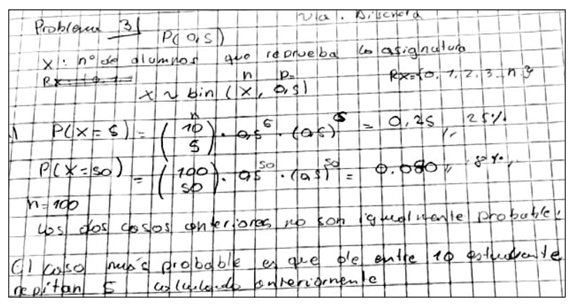 Problema 3) P(0,5) Via. Discreta
X: nº de alumnos que reprueba la asignatura
Rx={0,1 Rx={0,1,2,3...n}
n p
X ~ bin (X, 0,5)
P(X=5) = (10 5) · 0,5^5 · (0,5)^5 = 0,25 ,, 25%
P(X=50) = (100 50) · 0,5^50 · (0,5)^50 = 0.080 ,, 8%,,
n=100
Los dos casos anteriores no son igualmente probable,
C) Caso más probable es que de entre 10 estudiante
repitan 5 calculando anteriormente